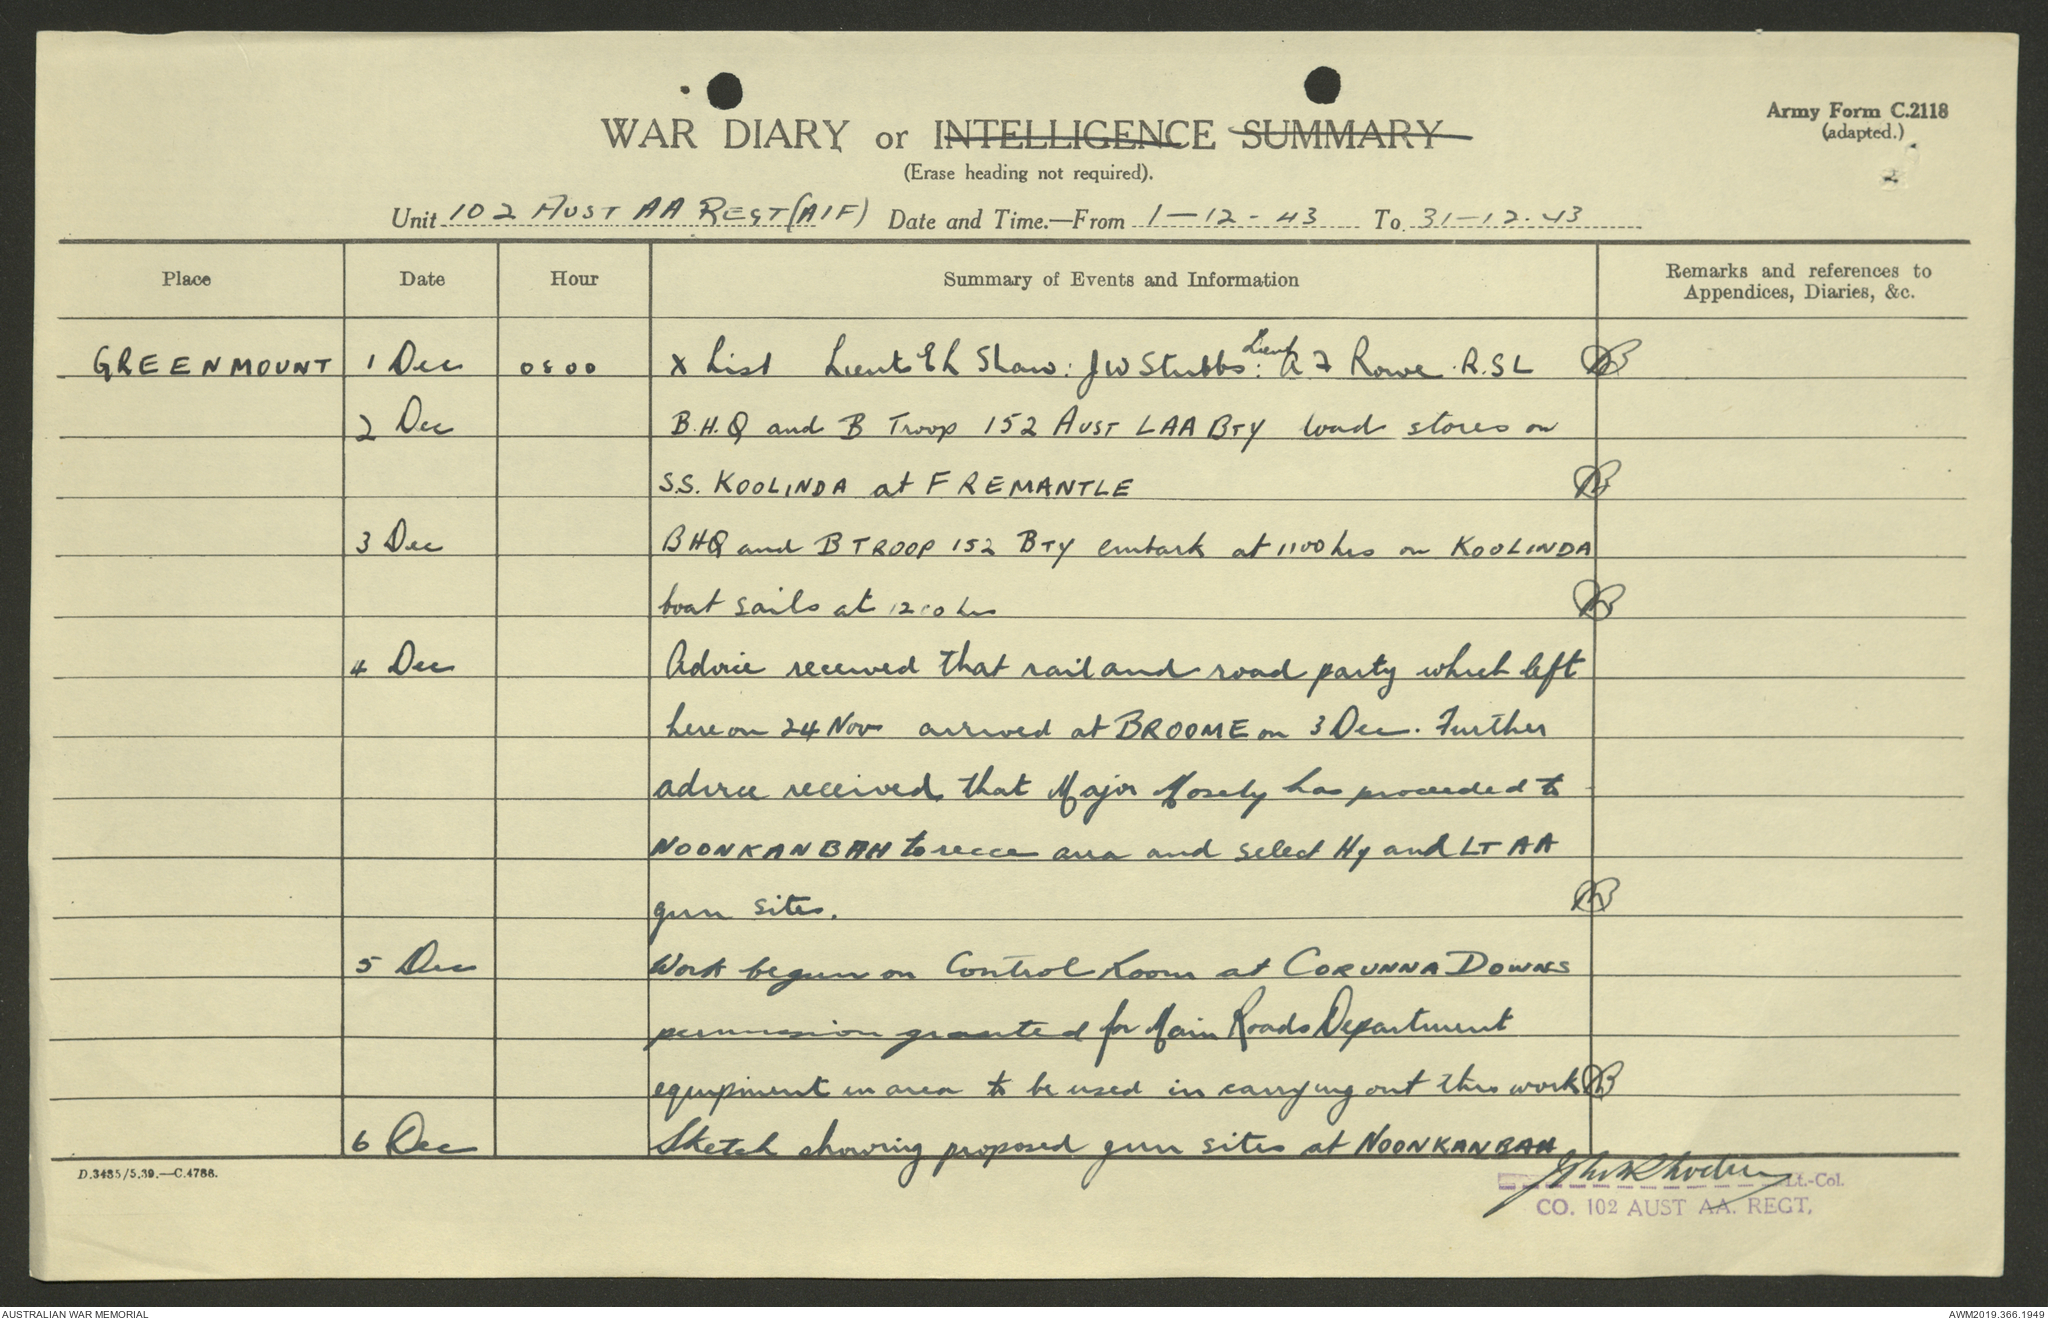 Army Form C.2118
(adapted.)
WAR DIARY or INTELLIGENCE SUMMARY
(Erase heading not required).
Unit 102 AUST AA REGT (AIF) Date and Time.—From 1-12-43 To 31-12-43
Place Date Hour Summary of Events and Information Remarks and references to
Appendices, Diaries, &c.
GREENMOUNT 1 Dec 0800 X List Lieuts E L Shaw: J W Stubbs: Lieut A F Rowe R.S L
2 Dec B.H.Q and B Troop 152 AUST LAA BTY load stores on
S.S. KOOLINDA at FREMANTLE
3 Dec BHQ and B TROOP 152 BTY embark at 1100 hrs on KOOLINDA
boat sails at 1200 hrs
4 Dec Advice received that rail and road party which left
here on 24 Nov arrived at BROOME on 3 Dec. Further
advice received that Major Mosely has proceeded to
NOONKANBAH to recce area and select Hy and LT AA
gun sites.
5 Dec Work begun on Control Room at CORUNNA DOWNS
permission granted for Main Roads Department
equipment in area to be used in carrying out this work
6 Dec Sketch showing proposed gun sites at NOONKANBAH
D.3485/5.39.—C.4786.
Lt.-Col.
CO. 102 AUST AA. REGT,
AUSTRALIAN WAR MEMORIAL
AWM2019.366.1949